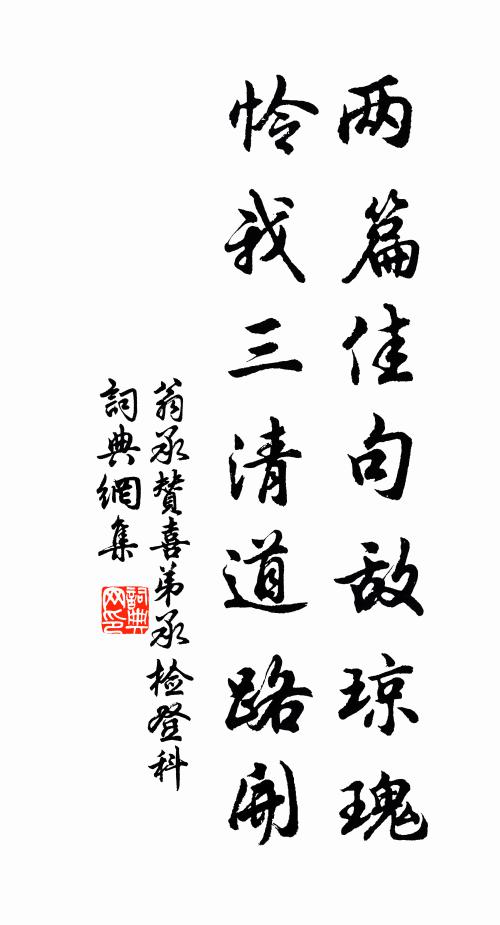 两篇佳句敌琼瑰
怜我三清道路開
翁承赞喜弟承检登科
詞典網集
詞典网印